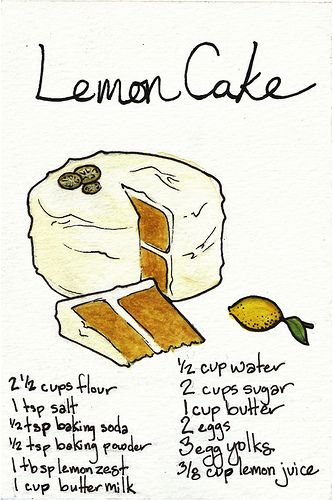 Lemon Cake
2 1/2 cups flour
1 tsp salt
1/2 tsp baking soda
1/2 tsp baking powder
1 tbsp lemon zest
1 cup butter milk
1/2 cup water
2 cups sugar
1 cup butter
2 eggs
3 egg yolks
3/8 cup lemon juice